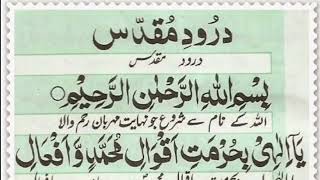 درودِ مُقدّس
درود مقدس
بِسْمِ اللهِ الرَّحْمٰنِ الرَّحِيْمِ
اللہ کے نام سے شروع جو نہایت مہربان رحم والا
يَآ اِلٰهِىْ بِحُرْمَتِ اَقْوَالِ مُحَمَّدٍ وَّ اَفْعَالِ